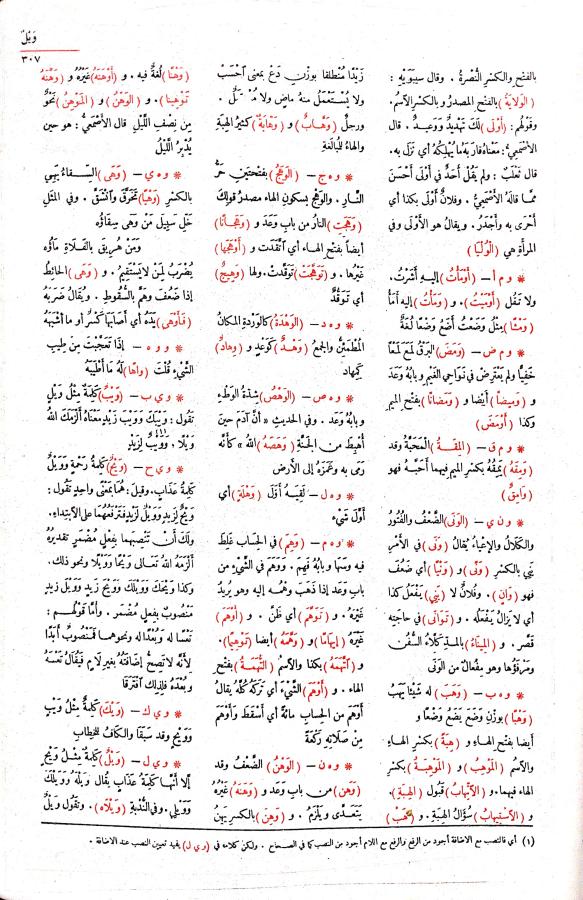 وَيْلٌ
٣٠٧
بالفتح والكسر النُّصْرةُ . وقال سيبويه :
(الوَلايَةُ) بالفتح المصدر وبالكسر الاسم .
وقولهُم : (أَوْلَى) لَكَ تهديدٌ وَوَعيدٌ . قال
الأصمعيُّ : معناه قاربَهُ ما يُهلِكُه أي نزل به .
قال ثعلب : ولم يَقُل أحدٌ في أَوْلَى أحسَنَ
ممّا قاله الأصمعيُّ . وفلانٌ أَوْلَى بكذا أي
أحْرَى به وأجْدَرُ . ويقال هو الأَوْلَى وفي
المرأة هي (الوُلْيَا)
* و م أ – (أَوْمَأْتُ) إليه أشرتُ .
ولا تقل (أَوْمَيْتُ) . و (وَمَأْتُ) إليه أَمَأُ
(وَمْئًا) مثلُ وَضَعْتُ أَضَعُ وَضْعًا لُغةٌ
* و م ض – (وَمَضَ) البرقُ لمَع لَمْعًا
خفيًّا ولم يَعترِض في نواحي الغيم وبابُه وَعَدَ
و (وَمِيضًا) أيضا و (وَمَضَانًا) بفتح الميم
وكذا (أَوْمَضَ)
* و م ق – (المِقَةُ) المحبَّةُ وقد
(وَمِقَهُ) يَمِقُهُ بكسر الميم فيهما أَحَبَّهُ فهو
(وَامِقٌ)
* و ن ي – (الوَنَى) الضَّعْفُ والفُتُورُ
والكَلالُ والإعْياءُ يُقالُ (وَنَى) في الأمْرِ
يَنِي بالكسر (وَنًى) و (وَنْيًا) أي ضعُف
فهو (وَانٍ) . وفلانٌ لا (يَنِي) يَفْعَلُ كذا
أي لا يزالُ يفعلُه . و (تَوَانَى) في حاجته
قصّر . و (المِينَاءُ) بالمدّ كَلَّاءُ السُّفُن
ومَرْفَؤُها وهو مِفْعالٌ من الوَنَى
* و ه ب – (وَهَبَ) له شيئا يَهَبُ
(وَهْبًا) بوزن وَضَع يضَع وَضْعا و
أيضا بفتح الهاء و (هِبَةً) بكسر الهاء .
والاسم (المَوْهِبُ) و (المَوْهِبَةُ) بكسر
الهاء فيهما . و (الاتِّهابُ) قبول (الهِبَةِ) .
و (الاسْتِيهابُ) سؤالُ الهبة . و
زَيْدًا مُنطلقا بوزن دَعْ بمعنى احْسَبْ
ولا يُستعمَل منه ماضٍ ولا
ورجلٌ (وَهَّابٌ) و (وَهَّابَةٌ) كثيرُ الهِبَةِ
والهاءُ للمُبالغة
* و ه ج – (الوَهَجُ) بفتحتين حَرُّ
النار . والوَهْج بسكون الهاء مصدر قولك
(وَهَجَتِ) النارُ من باب وَعَدَ و (وَهَجَانًا)
أيضا بفتح الهاء أي اتَّقدت و (أَوْهَجَها)
غيرُها . و (تَوَهَّجَتْ) تَوَقَّدَتْ . ولها (وَهِيجٌ)
أي تَوَقُّدٌ
* و ه د – (الوَهْدَةُ) كالوَرْدَةِ المكان
المطمئنُّ والجمعُ (وَهْدٌ) كوَعْدٍ و (وِهَادٌ)
كمِهادٍ
* و ه ص – (الوَهْصُ) شِدَّةُ الوَطْءِ
وبابُه وَعَدَ . وفي الحديث « أن آدم حين
أُهْبِطَ من الجنّة (وَهَصَهُ) اللهُ » كأنّه
رَمَى به وغَمَزَه إلى الأرض
* و ه ل – لَقِيَهُ أَوَّلَ (وَهْلَةٍ) أي
أوَّلَ شيْءٍ
* و ه م – (وَهِمَ) في الحساب غلِط
فيه وسَها وبابُه فهِم . ووَهَمَ في الشيء من
باب وعَد إذا ذهب وَهْمُه إليه وهو يريد
غيرَه . و (تَوَهَّمَ) أي ظنّ . و (أَوْهَمَ)
غيرَه (إيهامًا) و (وَهَّمَهُ) أيضا (تَوْهِيمًا) .
و (اتَّهَمَهُ) بكذا والاسمُ (التُّهَمَةُ) بفتح
الهاء . و (أَوْهَمَ) الشيءَ أي تركَهُ كُلَّهُ يقال
أَوْهَمَ من الحسابِ مائةً أي أسْقَط وأَوْهَمَ
من صلاته ركعةً
* و ه ن – (الوَهْنُ) الضّعفُ وقد
(وَهَنَ) من باب وَعَد و (وَهَنَهُ) غَيْرُهُ
يَتَعَدَّى ويلزَمُ . و (وَهِنَ) بالكسر يَهِنُ
(وَهْنًا) لغةٌ فيه . و (أَوْهَنَهُ) غيرُه و (وَهَّنَهُ)
تَوْهِينًا . و (الوَهْنُ) و (المَوْهِنُ) نحوٌ
من نِصْف الليل قال الأصمعيُّ : هو حين
يُدْبِرُ الليلُ
* و ه ي – (وَهَى) السِّقاءُ يَهِي
بالكسر (وَهْيًا) تَخَرَّقَ وانْشَقَّ . وفي المثل
خَلِّ سَبِيلَ مَنْ وَهَى سِقَاؤُه
وَمَنْ هُرِيقَ بالفلاةِ ماؤُه
يُضْرَبُ لمن لا يستقيم . و (وَهَى) الحائطُ
إذا ضعُف وهَمَّ بالسقوط . ويُقال ضربه
(فَأَوْهَى) يَدَهُ أي أصابها كَسْرٌ أو ما أشبهه
* و و ه – إذا تَعَجَّبْتَ من طيب
الشيء قُلْتَ (واهًا) له ما أطْيَبَهُ
* و ي ب – (وَيْبٌ) كلمةٌ مثلُ وَيْلٍ
تقول : وَيْبَكَ ووَيْبَ زيدٍ معناه ألْزَمَكَ اللهُ
وَيْلًا . ووَيْبٌ لزيدٍ
* و ي ح – (وَيْحٌ) كلمةُ رحمةٍ ووَيْلٌ
كلمةُ عذابٍ . وقيل : هُما بمعنًى واحدٍ تقول :
وَيْحٌ لزيدٍ ووَيْلٌ لزيدٍ فترفعُهما على الابتداء .
ولك أن تنصِبَهُما بفعلٍ مُضْمَرٍ تقديره
ألْزَمَهُ اللهُ تعالى وَيْحًا ووَيْلًا ونحو ذلك .
وكذا وَيْحَكَ ووَيْلَكَ ووَيْحَ زيدٍ ووَيْلَ زيدٍ
منصوبٌ بفعلٍ مُضمَر . وأمّا قولُهم :
تَعْسًا له وبُعْدًا له ونحوهما فمنصوبٌ أبدًا
لأنّه لا تصِحُّ إضافتُه بغير لامٍ فيُقالُ تَعْسَهُ
وبُعْدَهُ فلذلك افترقا
* و ي ك – (وَيْكَ) كلمةٌ مثلُ وَيْبٍ
ووَيْحٍ وقد سبقا والكافُ للخِطاب
* و ي ل – (وَيْلٌ) كلمةٌ مثلُ ويحٍ
إلّا أنّها كلمةُ عذابٍ يقال وَيْلَهُ ووَيْلَكَ
ووَيْلِي . وفي النُّدبةِ (وَيْلَاهُ) . وتقول وَيْلٌ
(١) أي فالنصب مع الاضافة أجود من الرفع والرفع مع اللام أجود من النصب كما في الصحاح . ولكن كلامه في (و ي ل) يفيد تعيين النصب عند الاضافة .